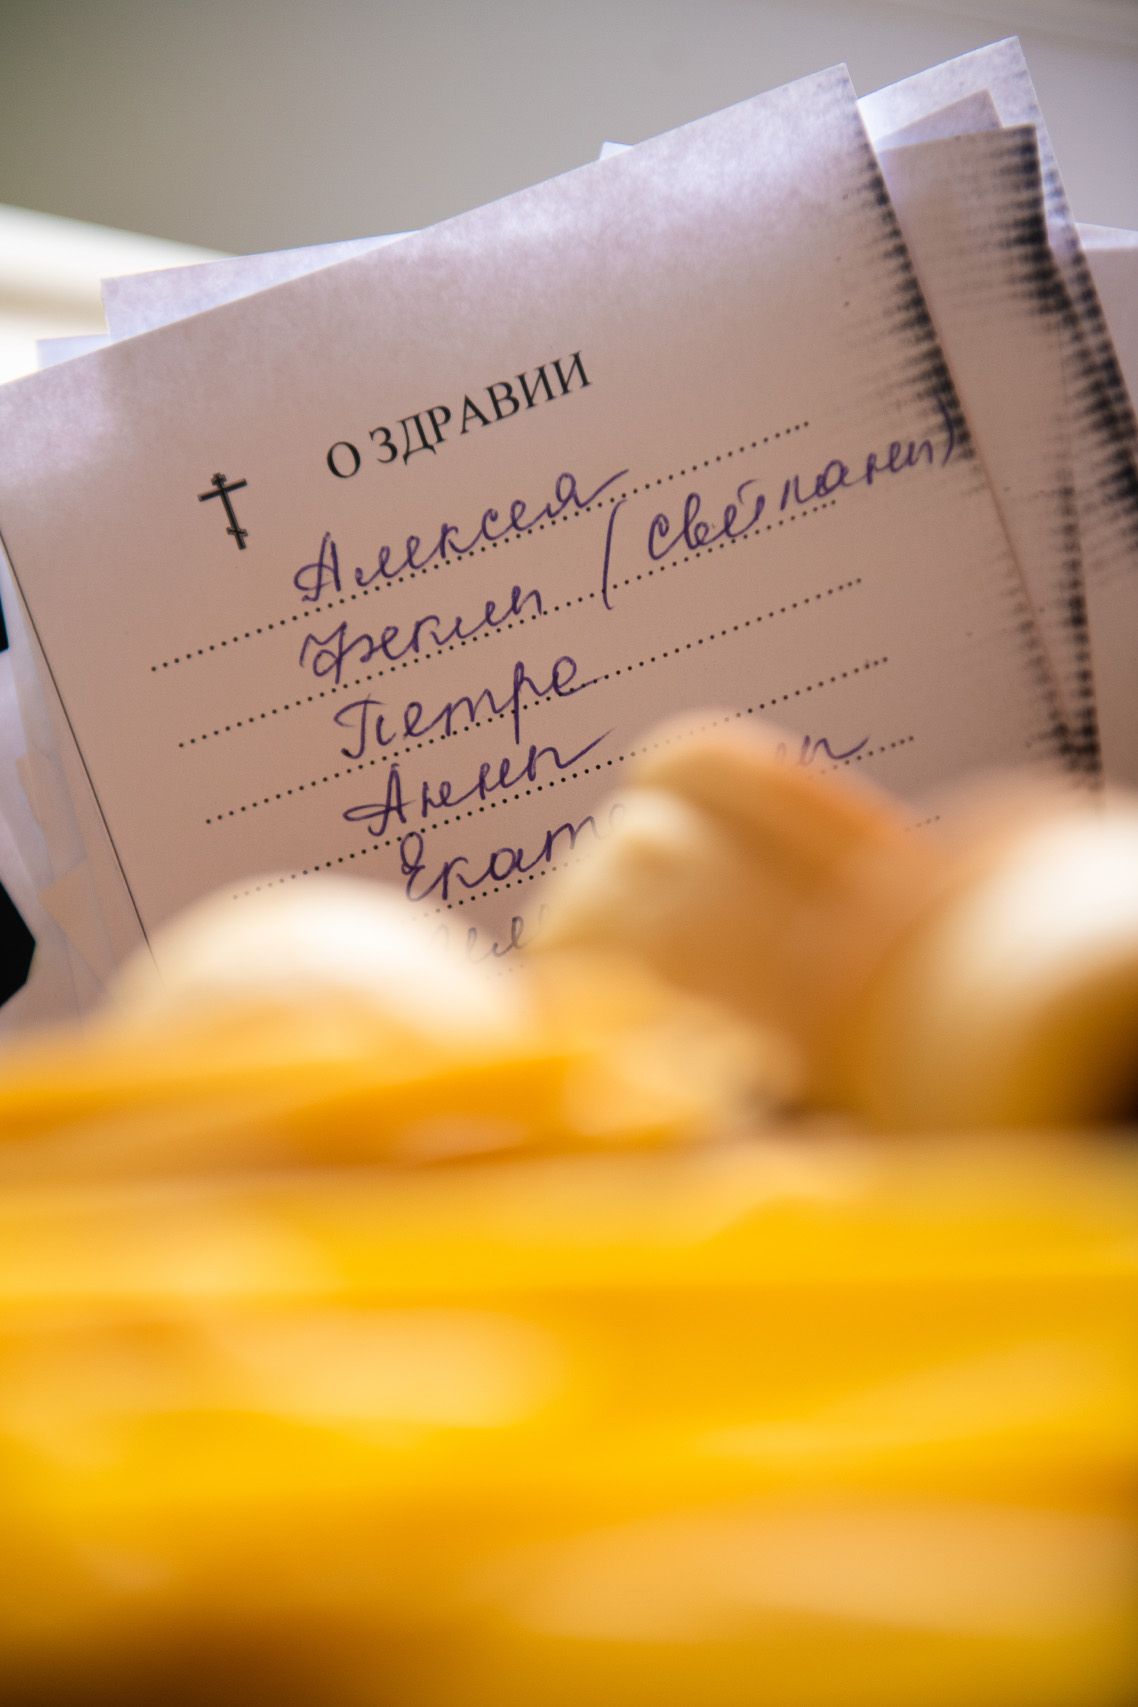 О ЗДРАВИИ
Алексея
(Светланы)
Петра
Анны
Екате